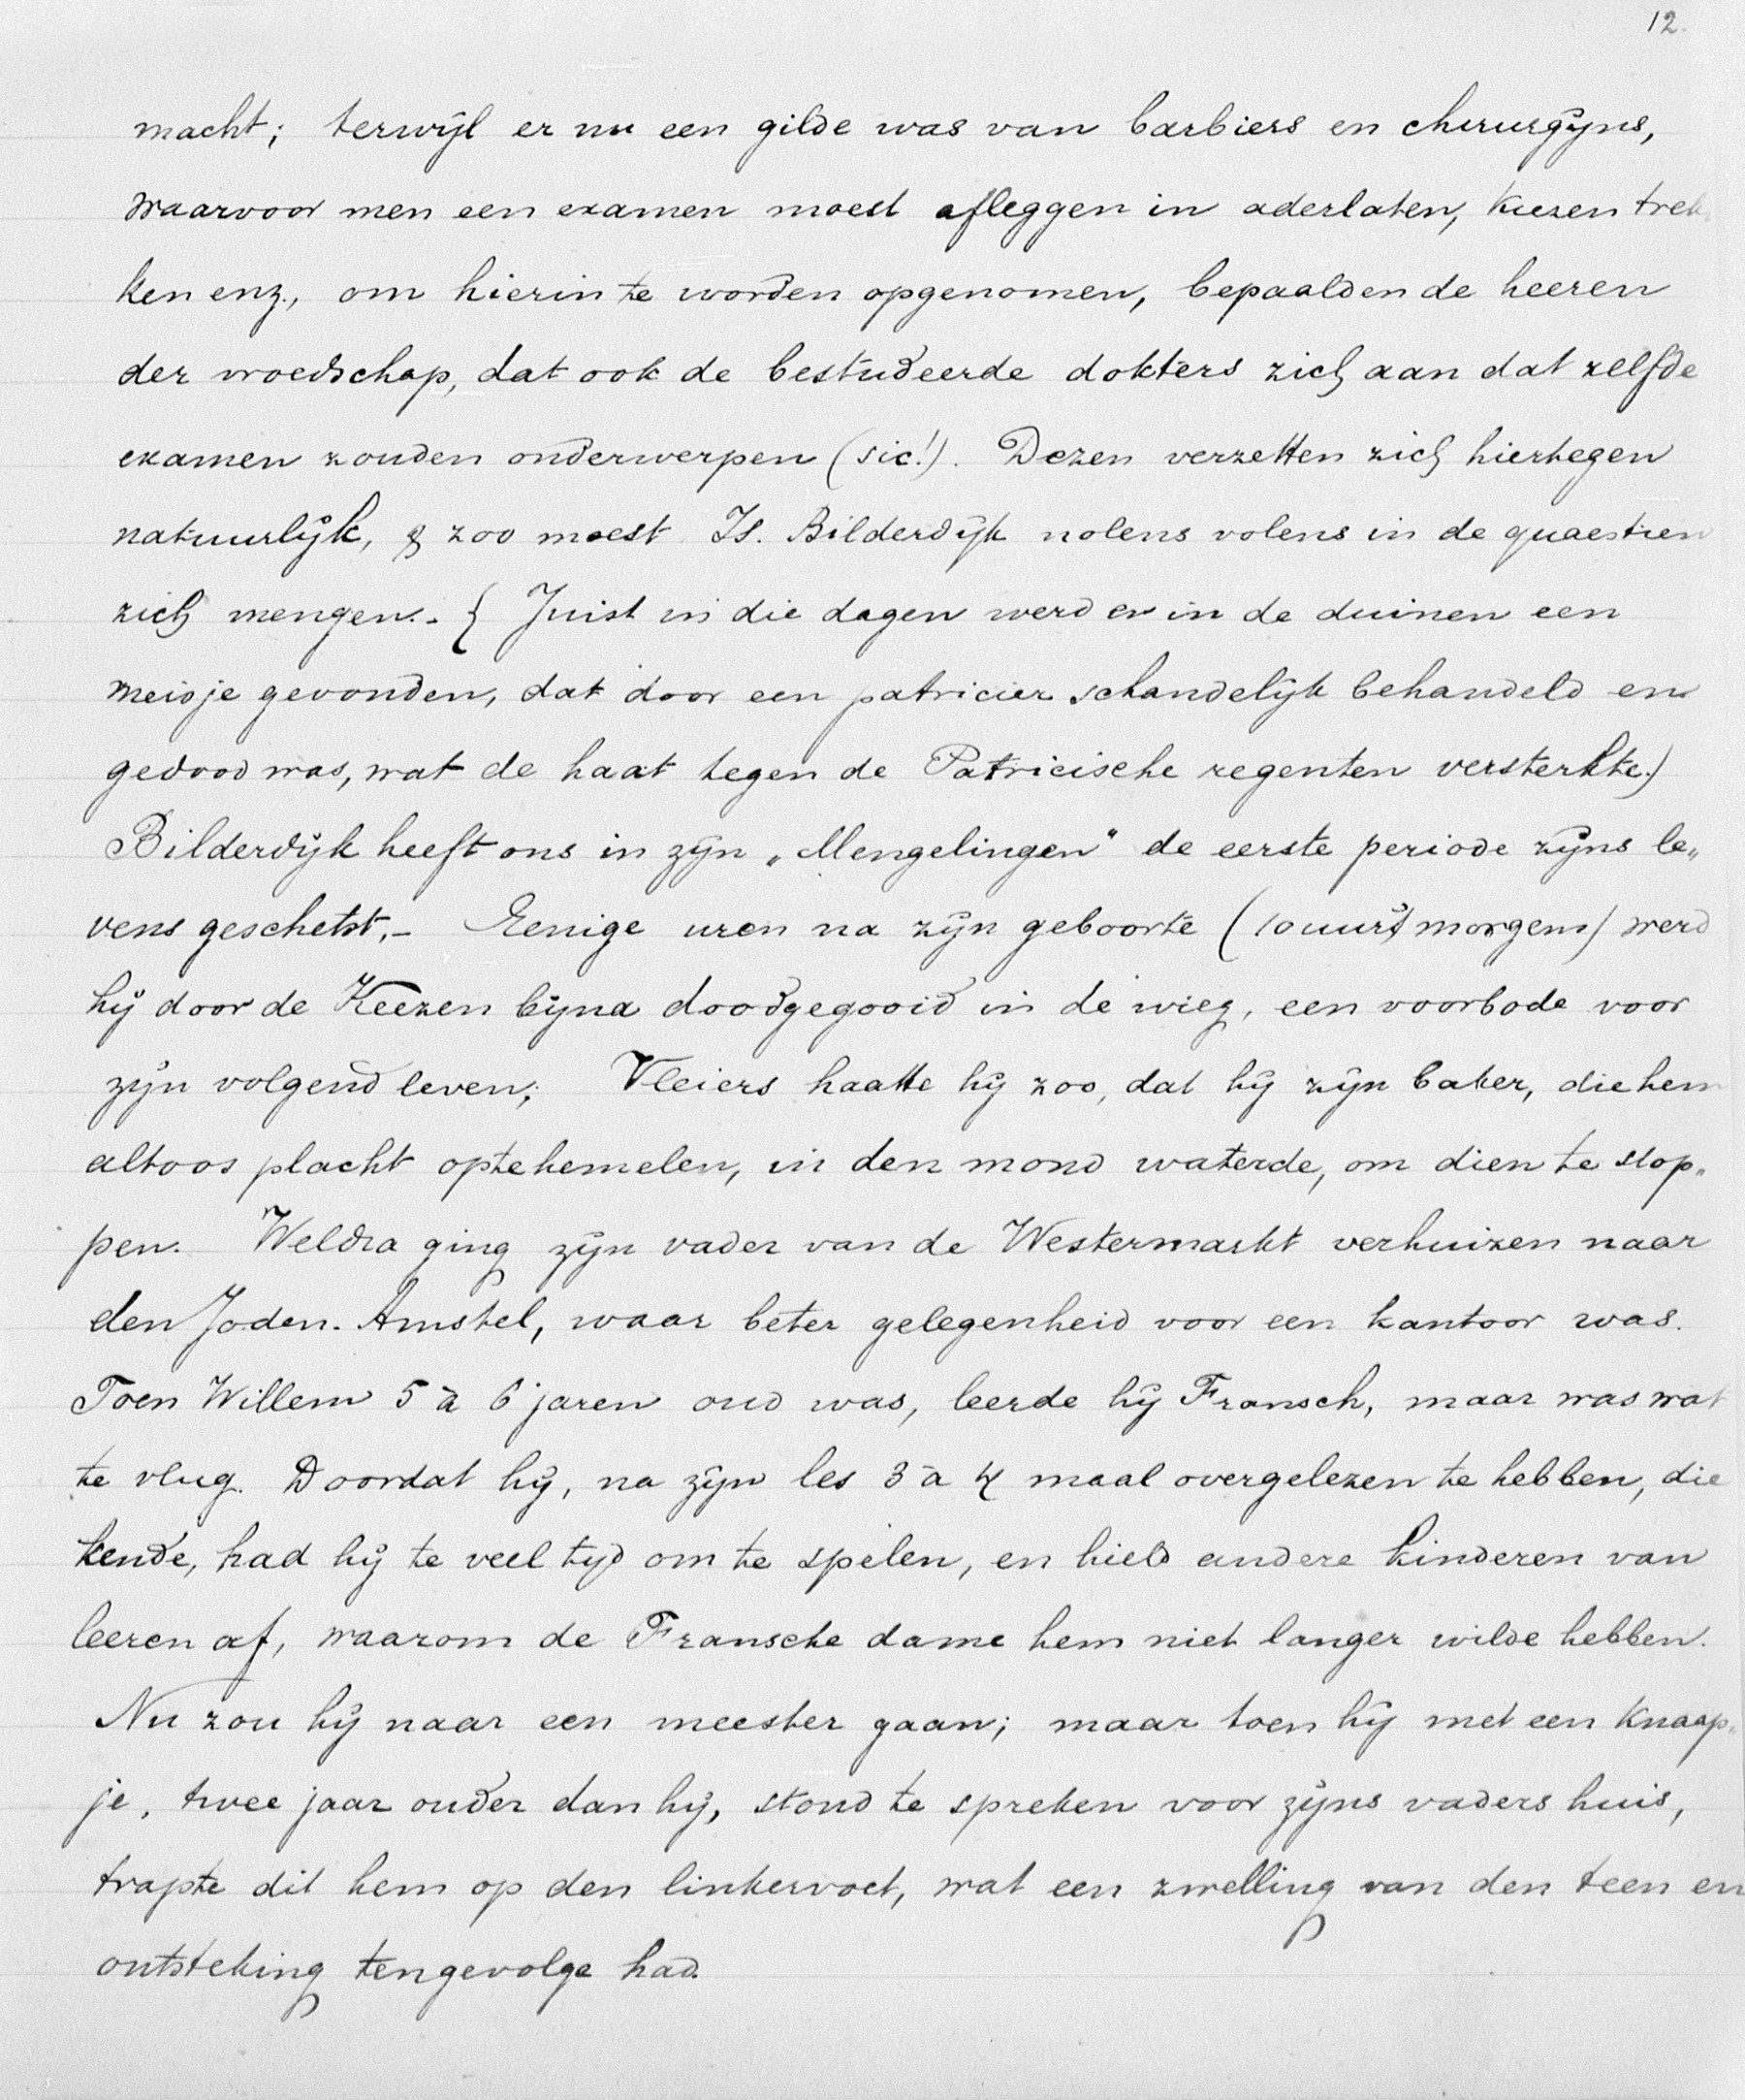 12.
macht; terwijl er nu een gilde was van barbiers en chirurgijns,
waarvoor men een examen moest afleggen in aderlaten, kiezen trek
ken enz., om hierin te worden opgenomen, bepaalden de heeren
der vroedschap, dat ook de bestudeerde dokters zich aan dat zelfde
examen zouden onderwerpen (sic!). Dezen verzetten zich hiertegen
natuurlijk, & zoo moest Is. Bilderdijk nolens volens in de quaestien
zich mengen. - { Juist in die dagen werd er in de duinen een
meisje gevonden, dat door een patricier schandelijk behandeld en
gedood was, wat de haat tegen de Patricische regenten versterkte.)
Bilderdijk heeft ons in zijn „Mengelingen" de eerste periode zijns le„
vens geschetst. - Eenige uren na zijn geboorte (10 uur 's morgens) werd
hij door de Keezen bijna doodgegooid in de wieg, een voorbode voor
zijn volgend leven; Vleiers haatte hij zoo, dat hij zijn baker, die hem
altoos placht optehemelen, in den mond waterde, om dien te stop„
pen. Weldra ging zijn vader van de Westermarkt verhuizen naar
den Joden-Amstel, waar beter gelegenheid voor een kantoor was.
Toen Willem 5 à 6 jaren oud was, leerde hij Fransch, maar was wat
te vlug. Doordat hij, na zijn les 3 à 4 maal overgelezen te hebben, die
kende, had hij te veel tijd om te spelen, en hield andere kinderen van
leeren af, waarom de Fransche dame hem niet langer wilde hebben.
Nu zou hij naar een meester gaan; maar toen hij met een knaap„
je, twee jaar ouder dan hij, stond te spreken voor zijns vaders huis,
trapte dit hem op den linkervoet, wat een zwelling van den teen en
ontsteking tengevolge had.